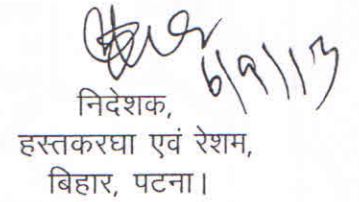 6/9/13
निदेशक,
हस्तकरघा एवं रेशम,
बिहार, पटना।